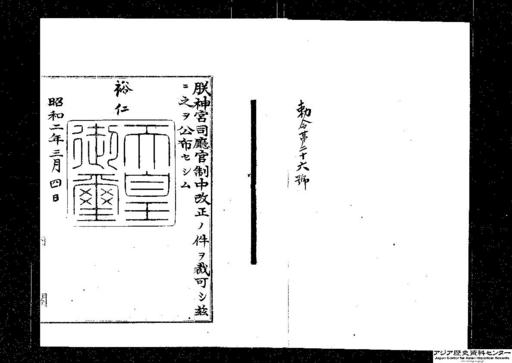 勅令第二十六號
朕神宮司廳官制中改正ノ件ヲ裁可シ玆
ニ之ヲ公布セシム
裕仁
天皇
御璽
昭和二年三月四日
アジア歴史資料センター
Japan Center for Asian Historical Records